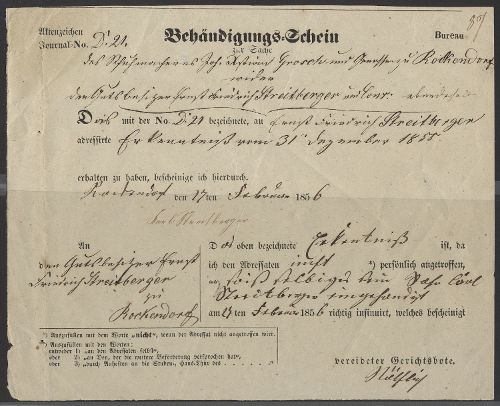 Aktenzeichen
Journal-No. D. 21.
Behändigungs-Schein
Bureau
zur Sache
des Schuhmachers Joh. Grosch und Genossen zu Rockendorf
wider
den Gutsbesitzer Ernst Friedrich Streitberger und Cons.
Das mit der No. D. 21 bezeichnete, an Ernst Friedrich Streitberger
adressirte Erkenntniß vom 31. Dezember 1855
erhalten zu haben, bescheinige ich hierdurch.
den 17 ten Februar 1856
Streitberger
An
den Gutsbesitzer Ernst
Friedrich Streitberger
zu
Rockendorf
Das oben bezeichnete Erkentniß ist, da
ich den Adressaten nicht *) persönlich angetroffen,
dem Sohn Carl
Streitberger eingehändigt
am 17 ten Februar 1856 richtig insinuirt, welches bescheinigt
vereideter Gerichtsbote.
*) Auszufüllen mit dem Worte „nicht“, wenn der Adressat nicht angetroffen wird.
**) Auszufüllen mit den Worten:
entweder 1) „an den Adressaten selbst“,
oder 2) „an Den, der die weitere Beförderung versprochen hat“,
oder 3) „durch Anheften an die Stuben, Haus-Thür des